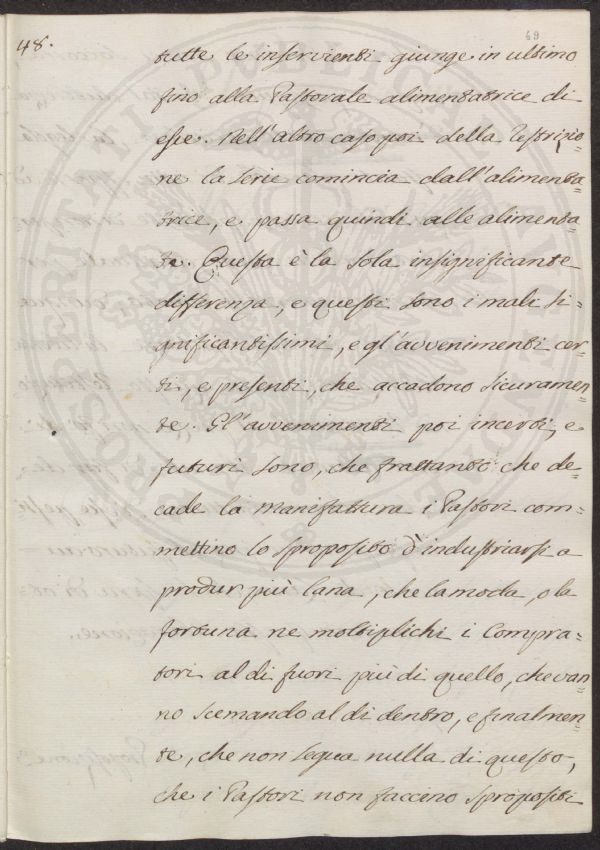 49
48.
tutte le inservienti giunge in ultimo
fino alla Pastorale alimentatrice di
esse. Nell'altro caso poi della restrizio=
ne la serie comincia dall'alimenta=
trice, e passa quindi alle alimenta=
te. Questa è la sola insignificante
differenza, e questi sono i mali si=
gnificantissimi, e gl'avvenimenti cer=
ti, e presenti, che accadono sicuramen=
te. Gl'avvenimenti poi incerti, e
futuri sono, che frattanto che de=
cade la manifattura i Pastori com=
mettino lo sproposito d'industriarsi a
produr più lana, che la moda, o la
fortuna ne moltiplichi i Compra=
tori al di fuori più di quello, che van=
no scemando al di dentro, e finalmen=
te, che non segua nulla di questo,
che i Pastori non faccino spropositi